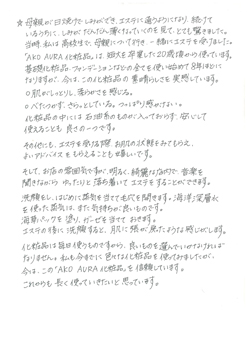 ☆ 母親が日焼けでしみができ、エステに通うようになり、続けて
いるうちに、しみがだんだん薄くなっていくのを見て、とても驚きました。
当時、私は高校生で、母親について行き 一緒にエステを受けました。
"AKO AURA 化粧品"は、短大を卒業した20歳頃から使っています。
基礎化粧品、ファンデーションなどの全てを使い始めて8年ほどに
なりますが、今は、この化粧品の素晴らしさを実感しています。
○肌がしっとりし、滑らかさを感じる。
○べたつかず、さらっとしている。つっぱり感がない。
化粧品の中には 石油系のものが入っておらず、安心して
使えることも 良さの一つです。
その他にも、エステを受ける際 お肌の状態をみてもらえ、
よいアドバイスをもらえることも嬉しいです。
そして、お店の雰囲気が、明るく、綺麗な所で、音楽を
聞きながら ゆったりと落ち着いて エステをすることができます。
洗顔をし、はじめに蒸気を当て毛穴を開きます。海洋深層水
を使った蒸気は、また気持ちが良いものです。
海草パックを塗り、ガーゼを当てておきます。
エステの後に洗顔すると、肌に張が戻ったような感じがします。
化粧品は毎日使うものですから、良いものを選んでいかなければ
なりません。私も今までに色々な化粧品を使ってみましたが、
今は、この"AKO AURA 化粧品"を信頼しています。
これからも長く使っていきたいと思っています。